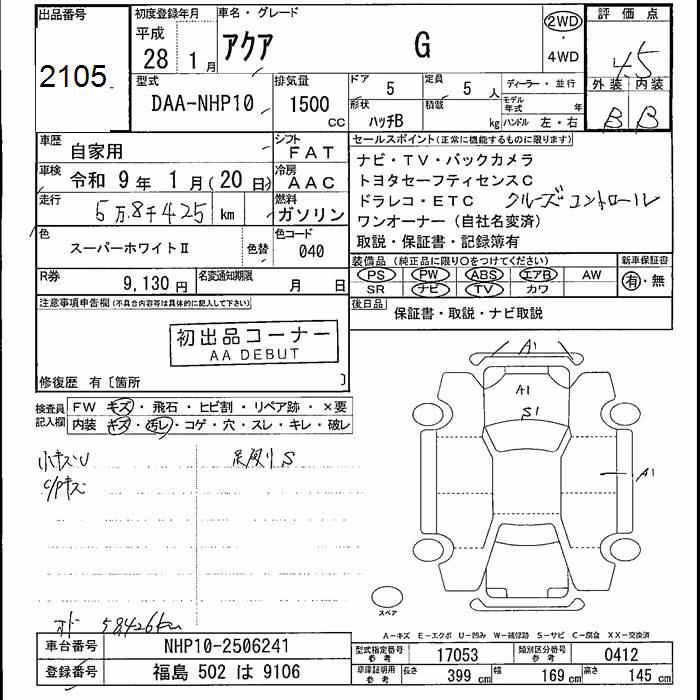 出品番号
2105
初度登録年月
平成
28 1月
車名・グレード
アクア G
2WD
・
4WD
評価点
4.5
外装 内装
B B
型式
DAA-NHP10
排気量
1500 CC
ドア 5
定員 5 人
ディーラー・並行
形状 ハッチB
積載 kg
モデル年式 年
ハンドル 左・右
車歴 自家用
シフト FAT
車検 令和 9年 1月(20日)
冷房 AAC
走行 5万8千425 km
燃料 ガソリン
色 スーパーホワイトⅡ 色替
色コード 040
R券 9,130円
名変通知期限 月 日
セールスポイント(正常に機能するものに限ります)
ナビ・TV・バックカメラ
トヨタセーフティセンスC
ドラレコ・ETC クルーズコントロール
ワンオーナー(自社名変済)
取説・保証書・記録簿有
装備品(純正品に限り〇をつけてください)
新車保証書
PS PW ABS エアB AW
SR ナビ TV カワ
有・無
後日品
保証書・取説・ナビ取説
注意事項申告欄(不具合内容等は具体的に記入して下さい)
初出品コーナー
AA DEBUT
修復歴 有〔箇所 〕
検査員記入欄
FW キズ・飛石・ヒビ割・リペア跡・×要
内装 キズ・汚レ・コゲ・穴・スレ・キレ・破レ
小キズU
C/Pキズ
足廻りS
A1
A1
S1
A1
スペア
オド 58,426km
A-キズ E-エクボ U-凹み W-補修跡 S-サビ C-腐食 XX-交換済
車台番号 NHP10-2506241
登録番号 福島 502 は 9106
型式指定番号 参考 17053
類別区分番号 参考 0412
車庫証明用 参考 長さ 399 cm 幅 169 cm 高さ 145 cm